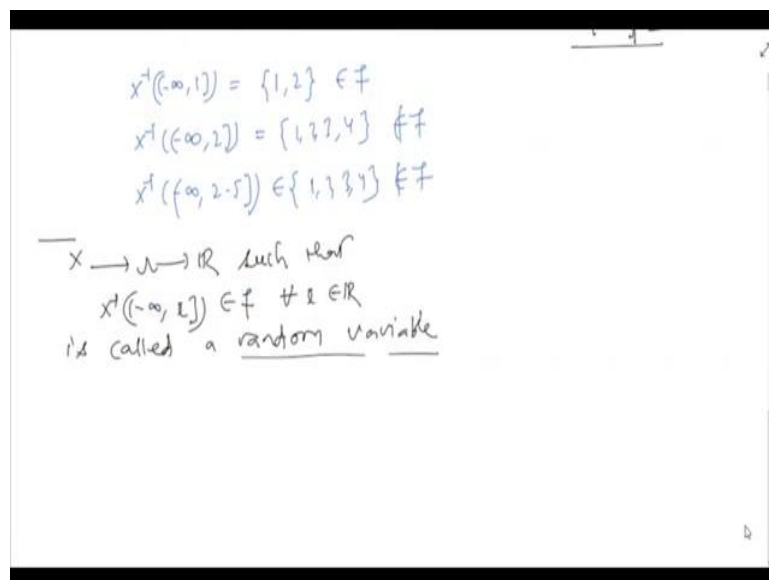 X⁻¹((-∞,1]) = {1,2} ∈ F
X⁻¹((-∞,2]) = {1,2,3,4} ∉ F
X⁻¹((-∞, 2.5]) ∈ {1,2,3,4} ∉ F
X → Ω → ℝ such that
X⁻¹((-∞, x]) ∈ F ∀ x ∈ ℝ
is called a random variable